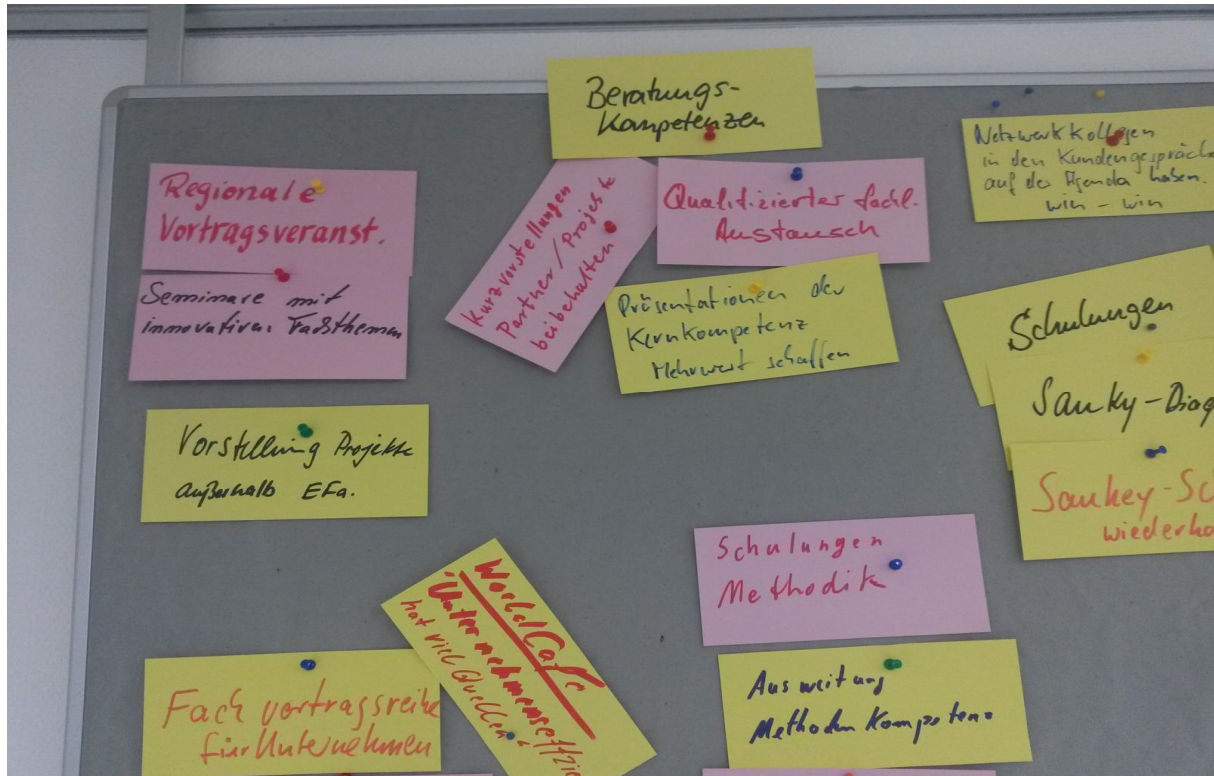 Beratungs-
Kompetenzen
Netzwerkkollegen
in den Kundengespräch
auf der Agenda haben.
win - win
Regionale
Vortragsveranst.
Kurzvorstellungen
Partner / Projekte
beibehalten
Qualifizierter fachl.
Austausch
Seminare mit
innovativen Fachthemen
Präsentationen der
Kernkompetenz
Mehrwert schaffen
Schulungen
Sanky-Diag
Sankey-Sc
wiederho
Vorstellung Projekte
außerhalb EFa.
Schulungen
Methodik
World Cafe
"Unternehmenseffizie
hat viel Quellen"
Fachvortragsreihe
für Unternehmen
Ausweitung
Methoden Kompetenz